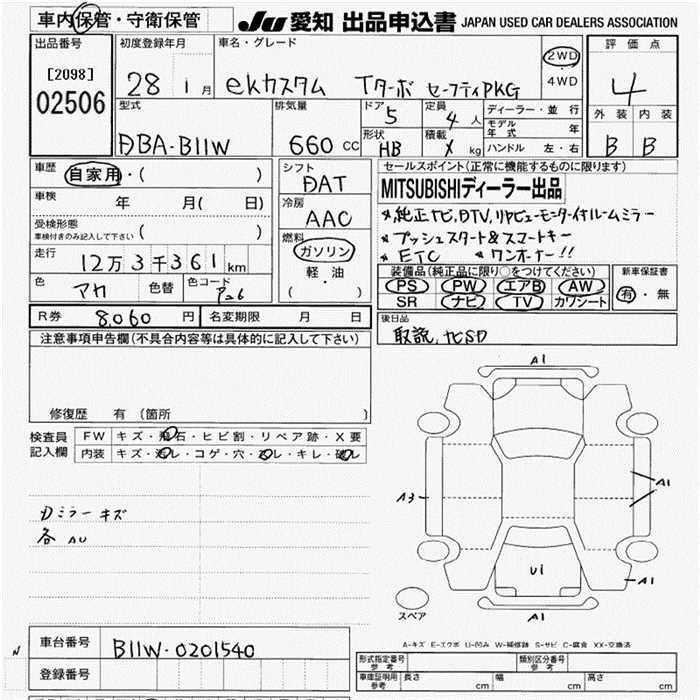 車内保管・守衛保管
JU 愛知 出品申込書 JAPAN USED CAR DEALERS ASSOCIATION
出品番号
[2098]
02506
初度登録年月
28 1月
車名・グレード
ekカスタム Tターボ セーフティPKG
2WD
・
4WD
評価点
4
外装 内装
B B
型式
DBA-B11W
排気量
660 CC
ドア
5
定員
4 人
形状
HB
積載
X kg
ディーラー・並行
モデル年式 年
ハンドル 左・右
車歴
自家用・( )
車検
年 月( 日)
受検形態
車検付きのみ記入して下さい ( )
走行
12万3千361km
色
アカ
色替
色コード
シフト
DAT
冷房
AAC
燃料
ガソリン
軽・油
( )
セールスポイント(正常に機能するものに限ります)
MITSUBISHIディーラー出品
*純正ナビ,DTV,リヤビューモーター付ルームミラー
*プッシュスタート&スマートキー
*ETC *ワンオーナー!!
装備品(純正品に限り○をつけてください)
PS PW エアB AW
SR ナビ TV カワシート
新車保証書
有・無
R券 8,060 円
名変期限 月 日
後日品
取説,ナビSD
注意事項申告欄(不具合内容等は具体的に記入して下さい)
修復歴 有 (箇所 )
検査員
記入欄
FW キズ・飛石・ヒビ割・リペア跡・X要
内装 キズ・汚レ・コゲ・穴・スレ・キレ・破レ
カミラー キズ
各 AU
A1
A3
A1
U1
A1
A1
スペア
A-キズ E-エクボ U-凹み W-補修跡 S-サビ C-腐食 XX-交換済
車台番号 B11W-0201540
登録番号
N
型式指定番号
参考
類別区分番号
参考
車庫証明用
参考
長さ cm 幅 cm 高さ cm